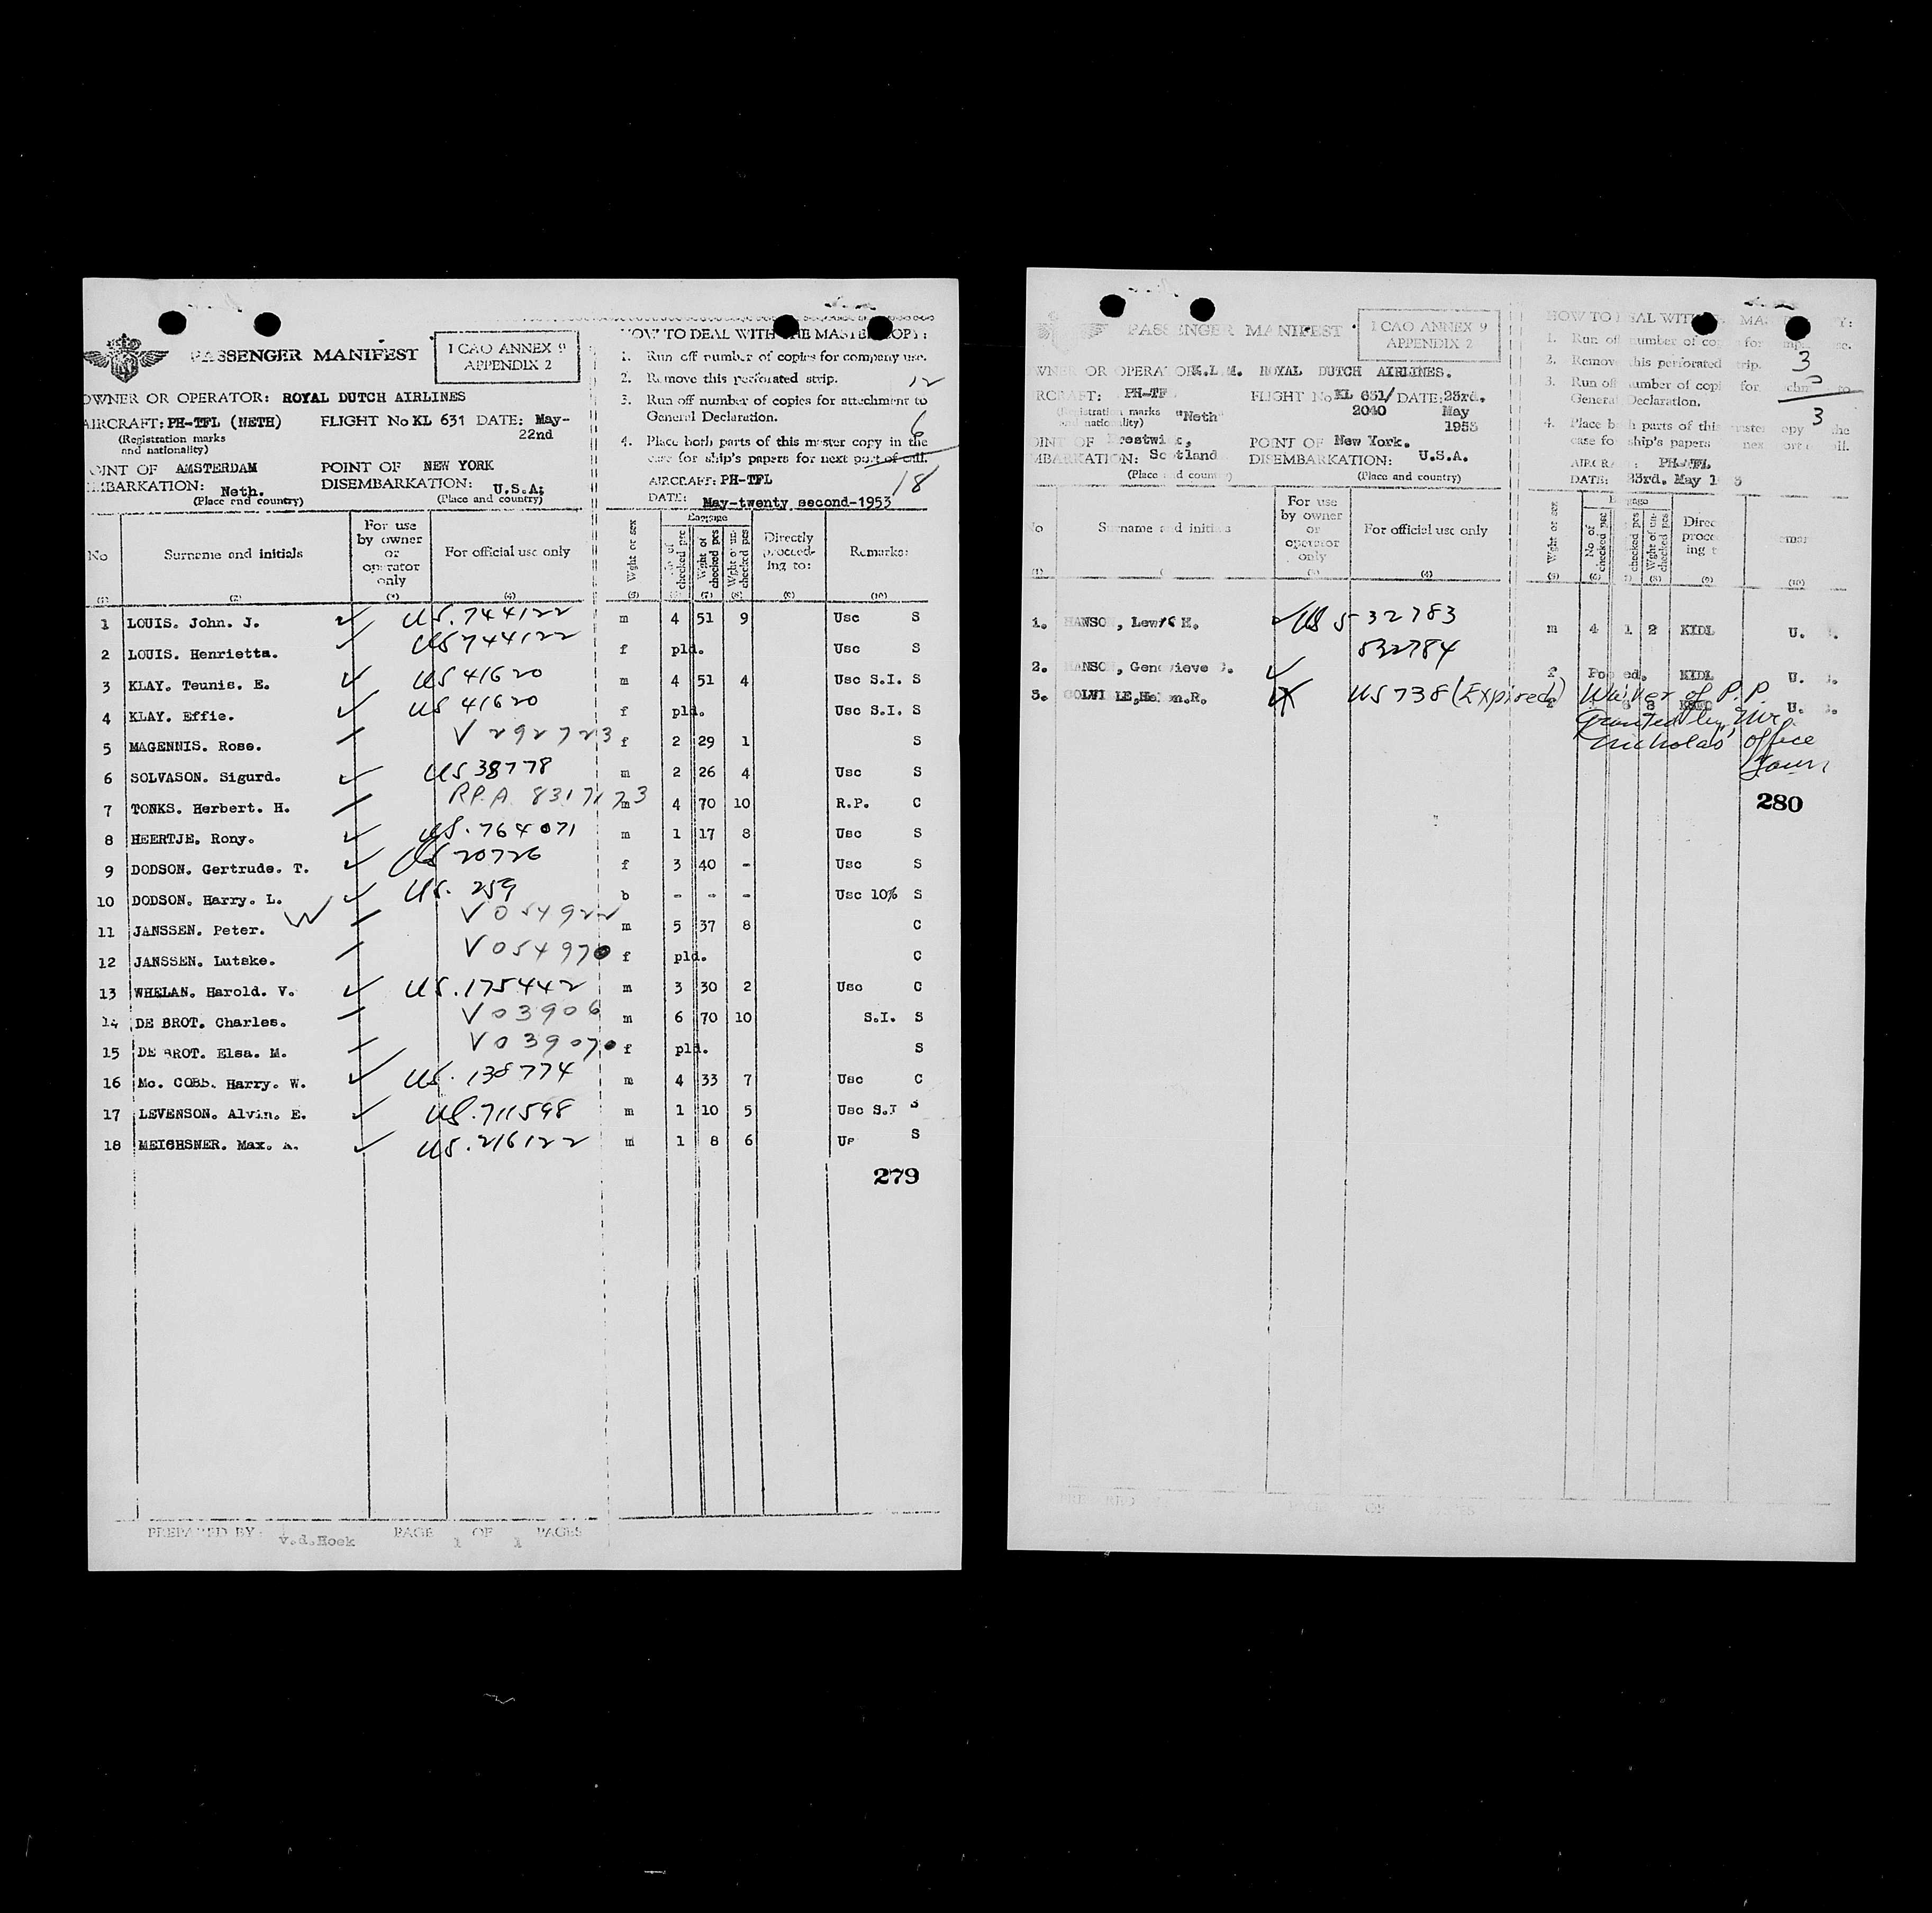 PASSENGER MANIFEST
I CAO ANNEX 9
APPENDIX 2
OWNER OR OPERATOR: ROYAL DUTCH AIRLINES
AIRCRAFT: PH-TFL (NETH) FLIGHT No KL 631 DATE: May-
22nd
(Registration marks
and nationality)
POINT OF AMSTERDAM POINT OF NEW YORK
EMBARKATION: Neth. DISEMBARKATION: U.S.A.
(Place and country) (Place and country)
HOW TO DEAL WITH THE MASTER COPY:
1. Run off number of copies for company use.
2. Remove this perforated strip.
12
3. Run off number of copies for attachment to
General Declaration.
6
4. Place both parts of this master copy in the
case for ship's papers for next port of call.
18
AIRCRAFT: PH-TFL
DATE: May-twenty second-1953
No Surname and initials For use by owner or operator only For official use only Wght or sex Baggage No of checked pcs Wght of checked pcs Wght of un-checked pcs Directly proceed-ing to: Remarks:
(1) (2) (3) (4) (5) (6) (7) (8) (9) (10)
1 LOUIS. John. J. US.744122 m 4 51 9 Usc S
2 LOUIS. Henrietta. US744122 f pld. Usc S
3 KLAY. Teunis. E. US 41620 m 4 51 4 Usc S.I. S
4 KLAY. Effie. US 41620 f pld. Usc S.I. S
5 MAGENNIS. Rose. V 292723 f 2 29 1 S
6 SOLVASON. Sigurd. US 38778 m 2 26 4 Usc S
7 TONKS. Herbert. H. R.P.A. 8317173 m 4 70 10 R.P. C
8 HEERTJE. Rony. US.764071 m 1 17 8 Usc S
9 DODSON. Gertrude. T. US 20726 f 3 40 - Usc S
10 DODSON. Harry. L. US. 259 b - - - Usc 10% S
11 JANSSEN. Peter. V 054922 m 5 37 8 C
12 JANSSEN. Lutske. V 054970 f pld. C
13 WHELAN. Harold. V. US.175442 m 3 30 2 Usc C
14 DE BROT. Charles. V 03906 m 6 70 10 S.I. S
15 DE BROT. Elsa. M. V 039070 f pld. S
16 Mc. COBB. Harry. W. US.138774 m 4 33 7 Usc C
17 LEVENSON. Alvin. E. US.711598 m 1 10 5 Usc S.I S
18 MEICHSNER. Max. A. US.216122 m 1 8 6 Us S
279
PREPARED BY: v.d.Hoek PAGE 1 OF 1 PAGES
PASSENGER MANIFEST
I CAO ANNEX 9
APPENDIX 2
OWNER OR OPERATOR K.L.M. ROYAL DUTCH AIRLINES.
AIRCRAFT: PH-TF FLIGHT No KL 631/ DATE: 23rd.
2040 May
1953
(Registration marks
and nationality) "Neth"
POINT OF Prestwick, POINT OF New York.
EMBARKATION: Scotland DISEMBARKATION: U.S.A.
(Place and country) (Place and country)
HOW TO DEAL WITH MASTER COPY:
1. Run off number of copies for company use.
2. Remove this perforated strip.
3
3. Run off number of copies for attachment to
General Declaration.
3
4. Place both parts of this master copy in the
case for ship's papers for next port of call.
AIRCRAFT: PH-TFL
DATE: 23rd. May 1953
No Surname and initials For use by owner or operator only For official use only Wght or sex Baggage No of checked pcs checked pcs Wght of un-checked pcs Direc proceed-ing t Remar
(1) (3) (4) (5) (6) (7) (8) (9) (10)
1. HANSON, Lewis H. US 532783 m 4 1 2 KIDL U.
532784
2. HANSON, Genevieve f Pooled. KIDL U.
3. COLVILLE, Helen.R. US 738 (Expired) Waiver of P.P. U.
Granted by Mr.
Nicholas' office
280
OF